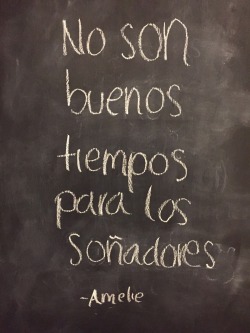 No son
buenos
tiempos
para los
soñadores
-Amelie